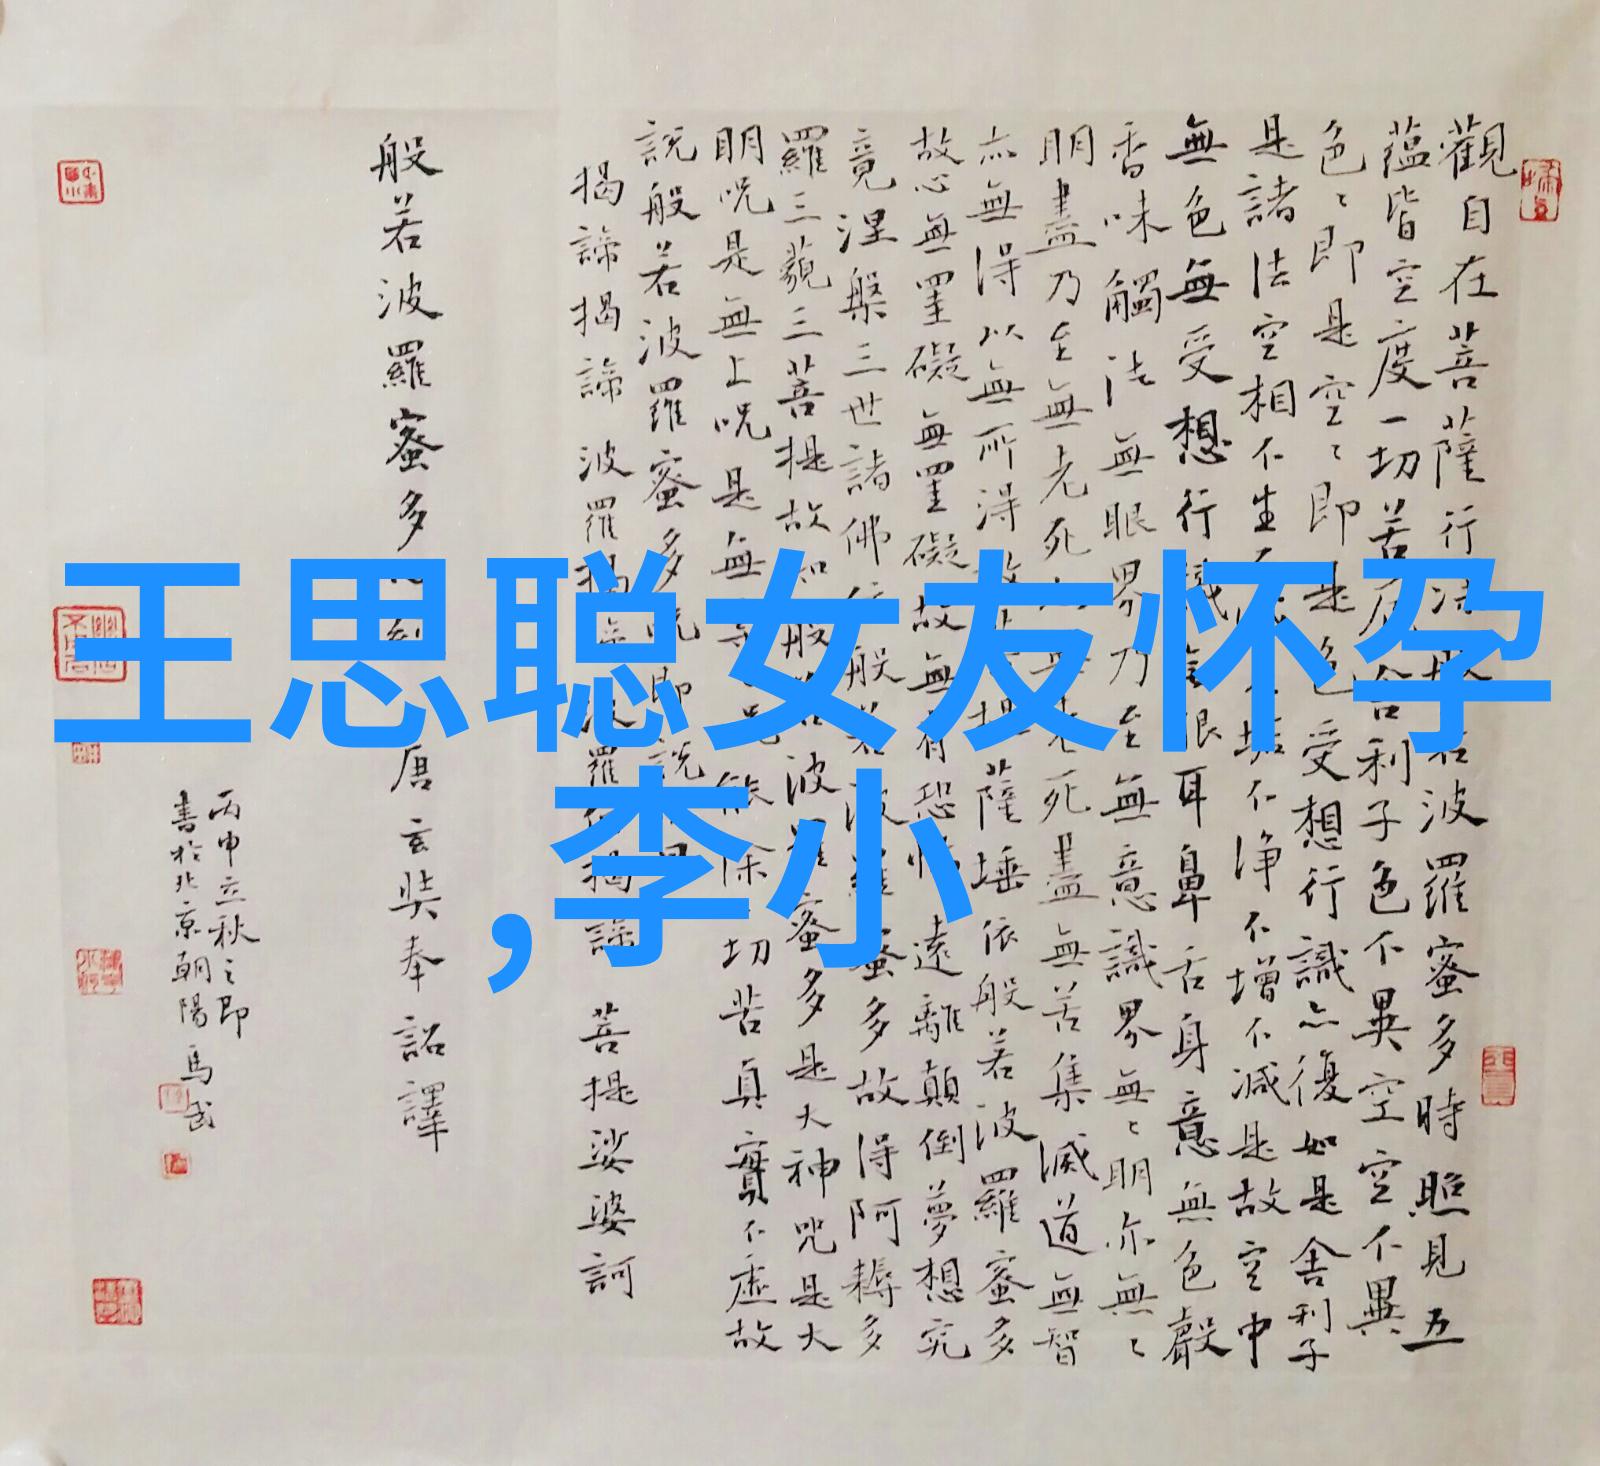 觀自在菩薩行深般若波羅蜜多時照見五
蘊皆空度一切苦厄舍利子色不異空空不異
色色即是空空即是色受想行識亦復如是舍利子
是諸法空相不生不滅不垢不净不增不减是故空中
無色無受想行識無眼耳鼻舌身意無色聲
香味觸法無眼界乃至無意識界無無明亦無無
明盡乃至無老死亦無老死盡無苦集滅道無智
亦無得以無所得故菩提薩埵依般若波羅蜜多
故心無罣礙無罣礙故無有恐怖遠離顛倒夢想究
竟涅槃三世諸佛依般若波羅蜜多故得阿耨多
羅三藐三菩提故知般若波羅蜜多是大神咒是大
明咒是無上咒是無等等咒能除一切苦真實不虛故
說般若波羅蜜多咒即說咒曰
揭諦揭諦 波羅揭諦 波羅僧揭諦 菩提娑婆訶
般若波羅蜜多心經 唐玄奘奉詔譯
丙申立秋之即
書於北京朝陽 馬武
王思聪女友怀孕
,李小